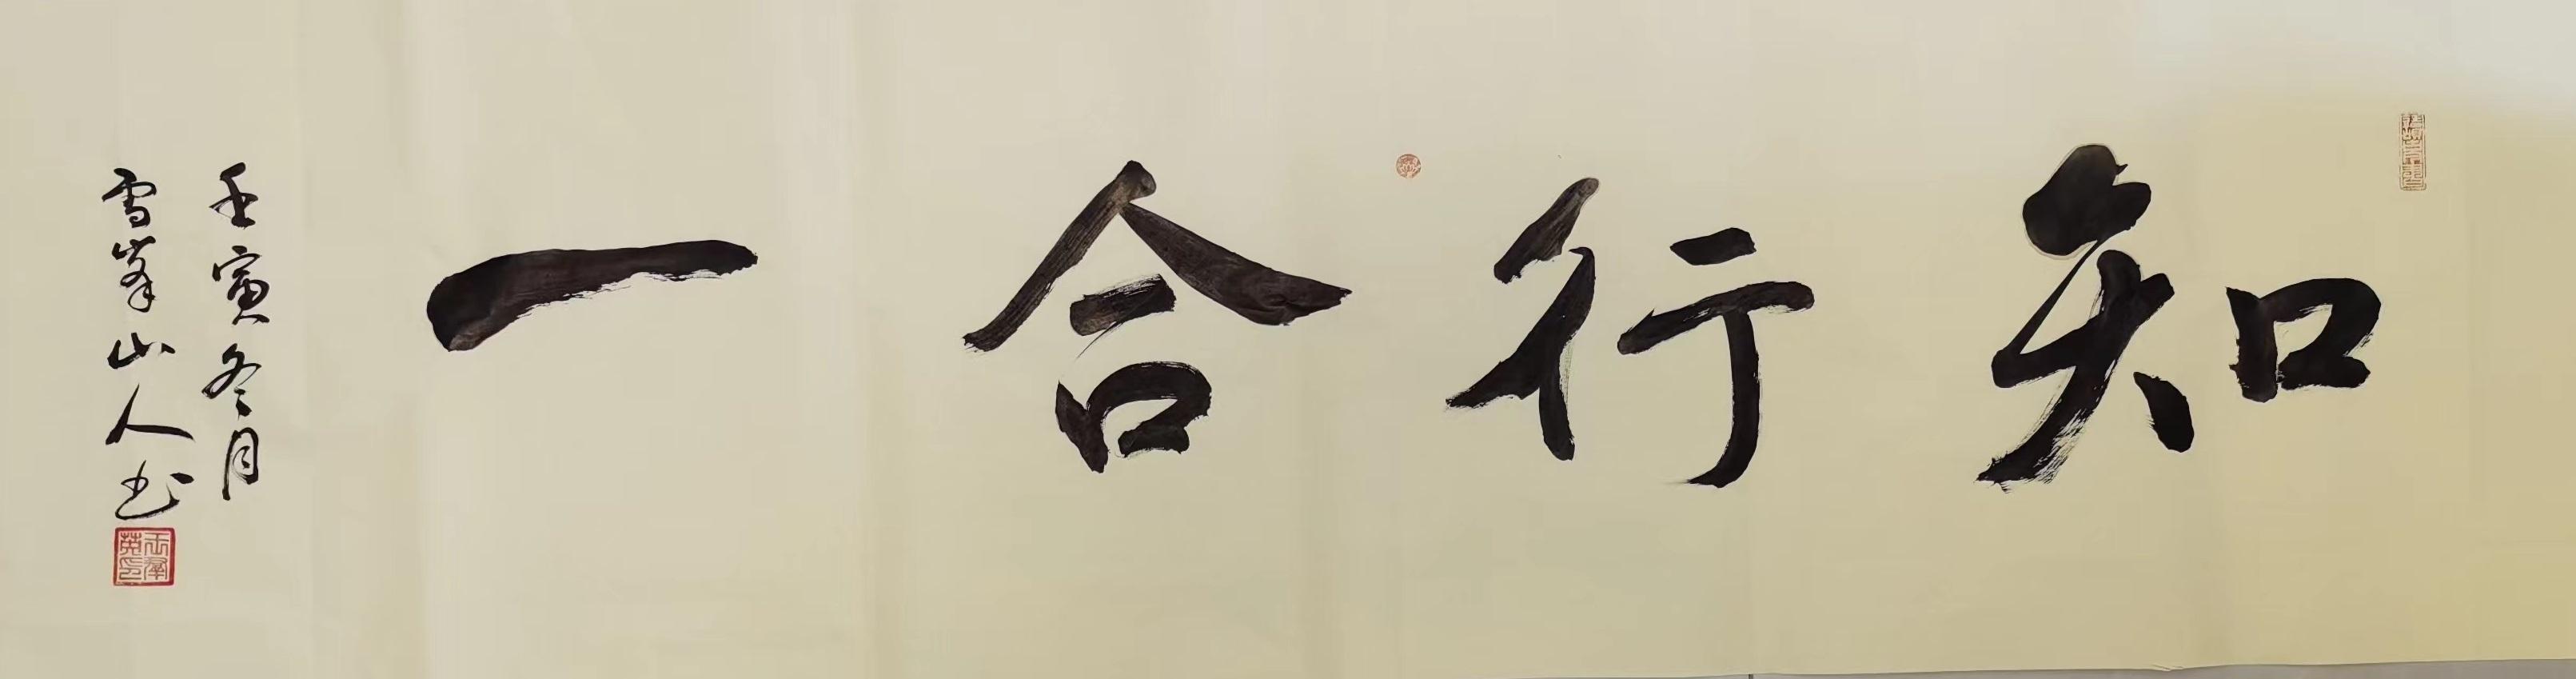 知行合一
壬寅冬月
雪峯山人书